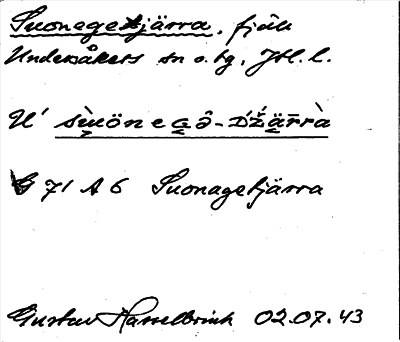 Suonegetjärra, fjäll
Undersåkers sn o. tg, Jtl. l.
U'
G 71 A 6 Suonagetjärra
Gustav Hasselbrink 02.07.43